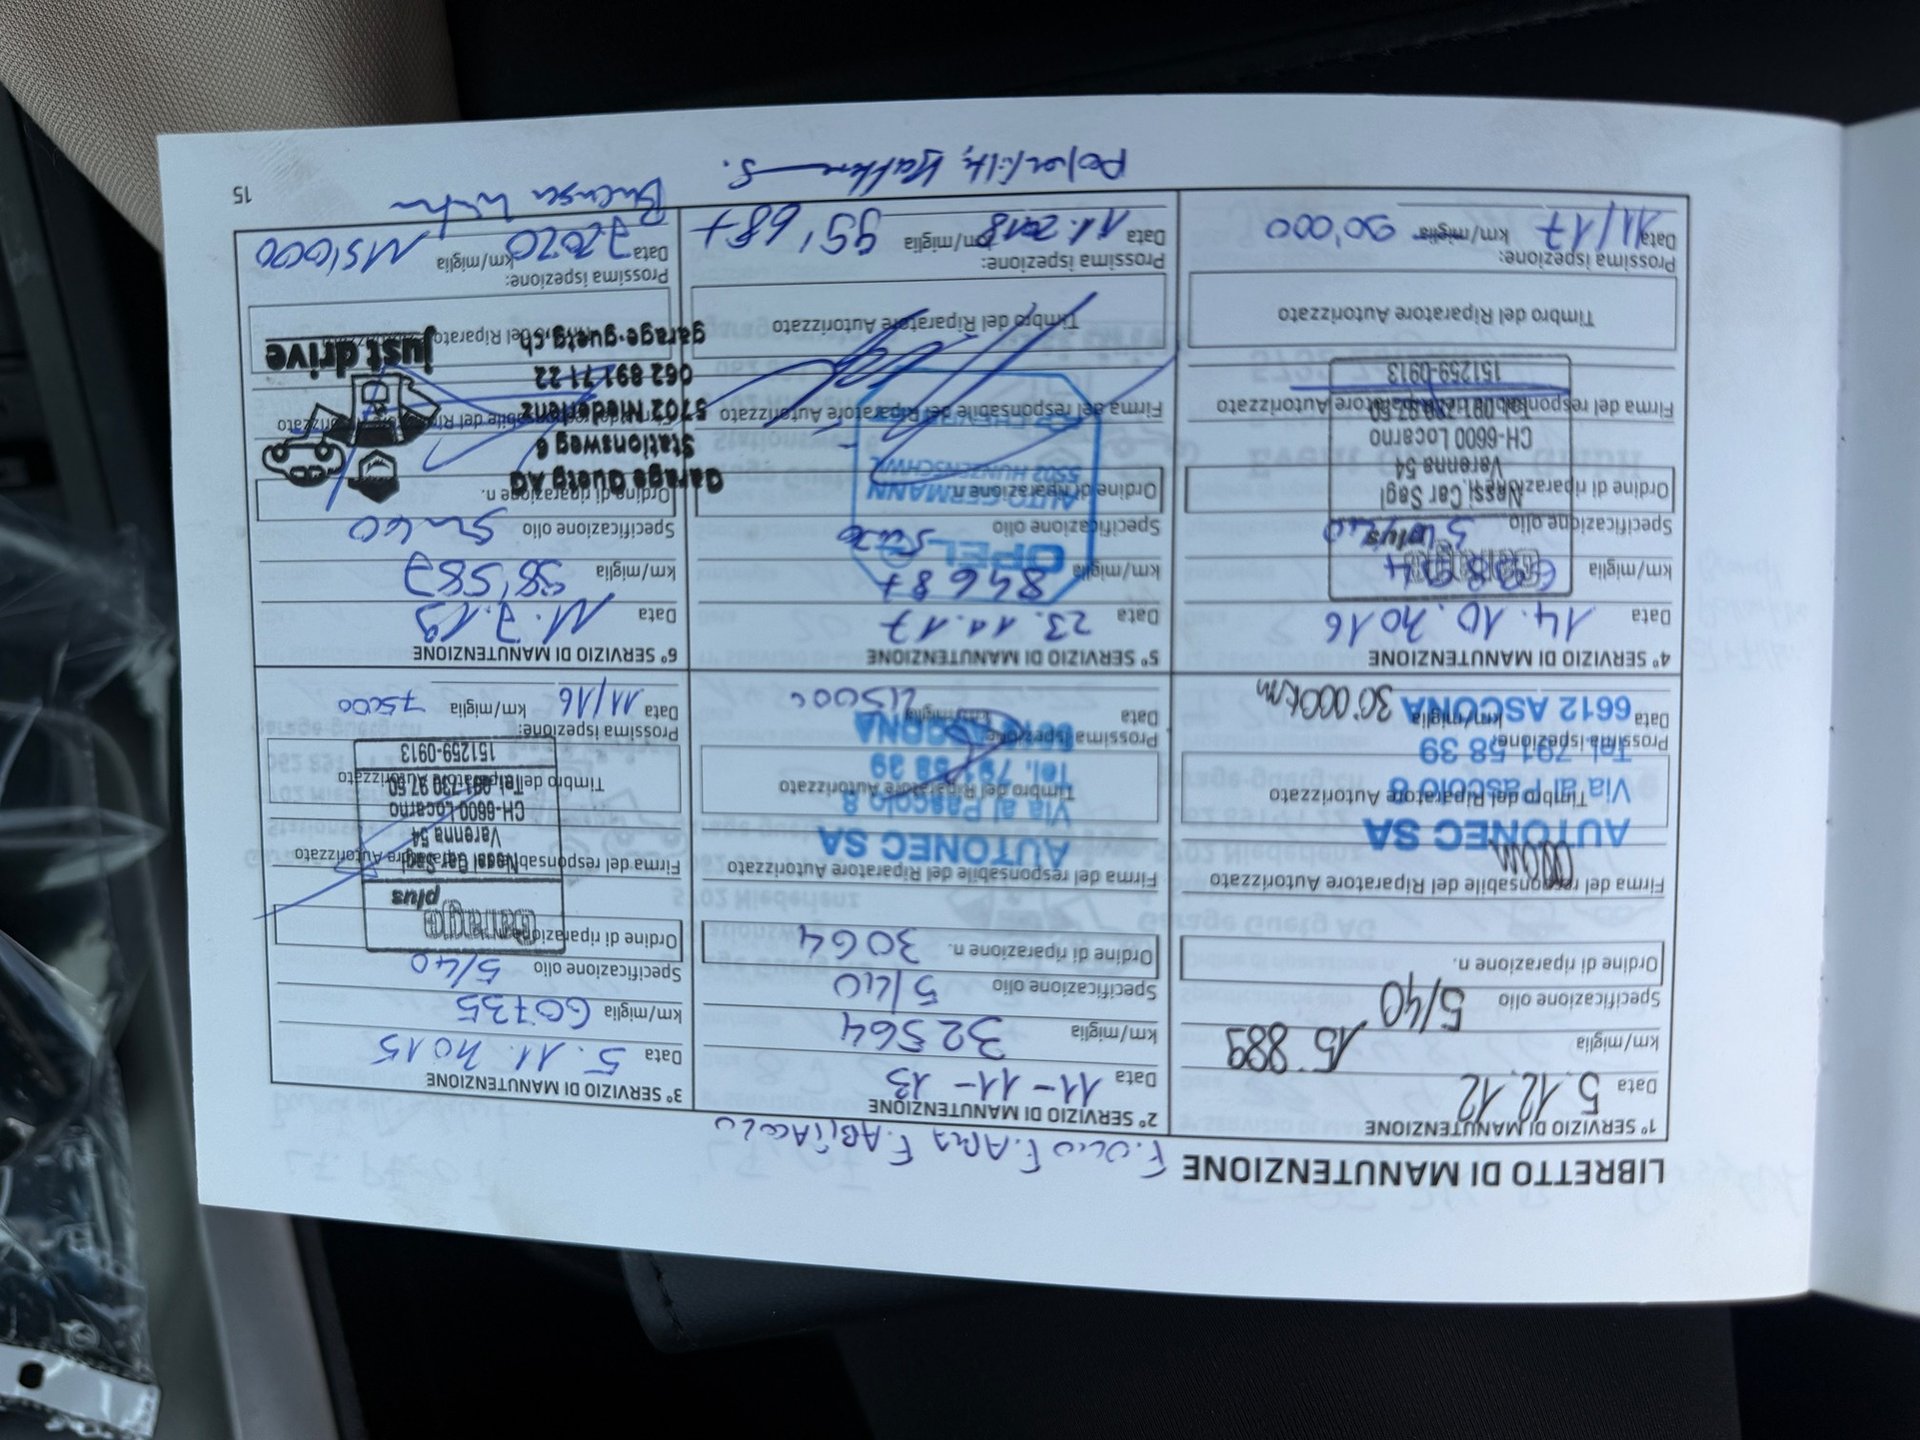 LIBRETTO DI MANUTENZIONE
F. OLIO F. ARIA F. ABITACOLO
1º SERVIZIO DI MANUTENZIONE
Data 5.12.12
km/miglia 15.889
Specificazione olio 5/40
Ordine di riparazione n.
Firma del responsabile del Riparatore Autorizzato
AUTONEC SA
Via al Pascolo 8
Timbro del Riparatore Autorizzato
Tel. 791 58 39
Prossima ispezione:
6612 ASCONA
Data km/miglia 30'000km
2º SERVIZIO DI MANUTENZIONE
Data 11-11-13
km/miglia 32564
Specificazione olio 5/40
Ordine di riparazione n. 3064
Firma del responsabile del Riparatore Autorizzato
AUTONEC SA
Via al Pascolo 8
Timbro del Riparatore Autorizzato
Tel. 791 58 39
Prossima ispezione:
6612 ASCONA
Data km/miglia 45000
3º SERVIZIO DI MANUTENZIONE
Data 5.11.2015
km/miglia 60735
Specificazione olio 5/40
Ordine di riparazione
Garage
plus
Firma del responsabile del Riparatore Autorizzato
Nessi Car Sagl
Varenna 54
CH-6600 Locarno
Timbro del Riparatore Autorizzato
Tel. 091 730 97 50
151259-0913
Prossima ispezione:
Data 11/16 km/miglia 75000
4º SERVIZIO DI MANUTENZIONE
Data 14.10.2016
km/miglia
Garage
plus
Specificazione olio 5w/40
Ordine di riparazione n.
Nessi Car Sagl
Varenna 54
CH-6600 Locarno
Tel. 091 730 97 50
Firma del responsabile del Riparatore Autorizzato
151259-0913
Timbro del Riparatore Autorizzato
Prossima ispezione:
Data 11/17 km/miglia 90'000
5º SERVIZIO DI MANUTENZIONE
Data 23.11.17
km/miglia 84687
OPEL
Specificazione olio 5w30
Ordine di riparazione n.
AUTO GERMANN
5502 HUNZENSCHWIL
CHEVROLET
Firma del responsabile del Riparatore Autorizzato
Timbro del Riparatore Autorizzato
Prossima ispezione:
Data 11.2018 km/miglia 99'687
6º SERVIZIO DI MANUTENZIONE
Data 11.7.19
km/miglia 98'587
Specificazione olio 5w40
Ordine di riparazione n.
Garage Guetg AG
Stationsweg 6
5702 Niederlenz
Firma del responsabile del Riparatore Autorizzato
062 891 71 22
garage-guetg.ch
just drive
Timbro del Riparatore
Prossima ispezione:
Data 7.2020 km/miglia 115'000
15